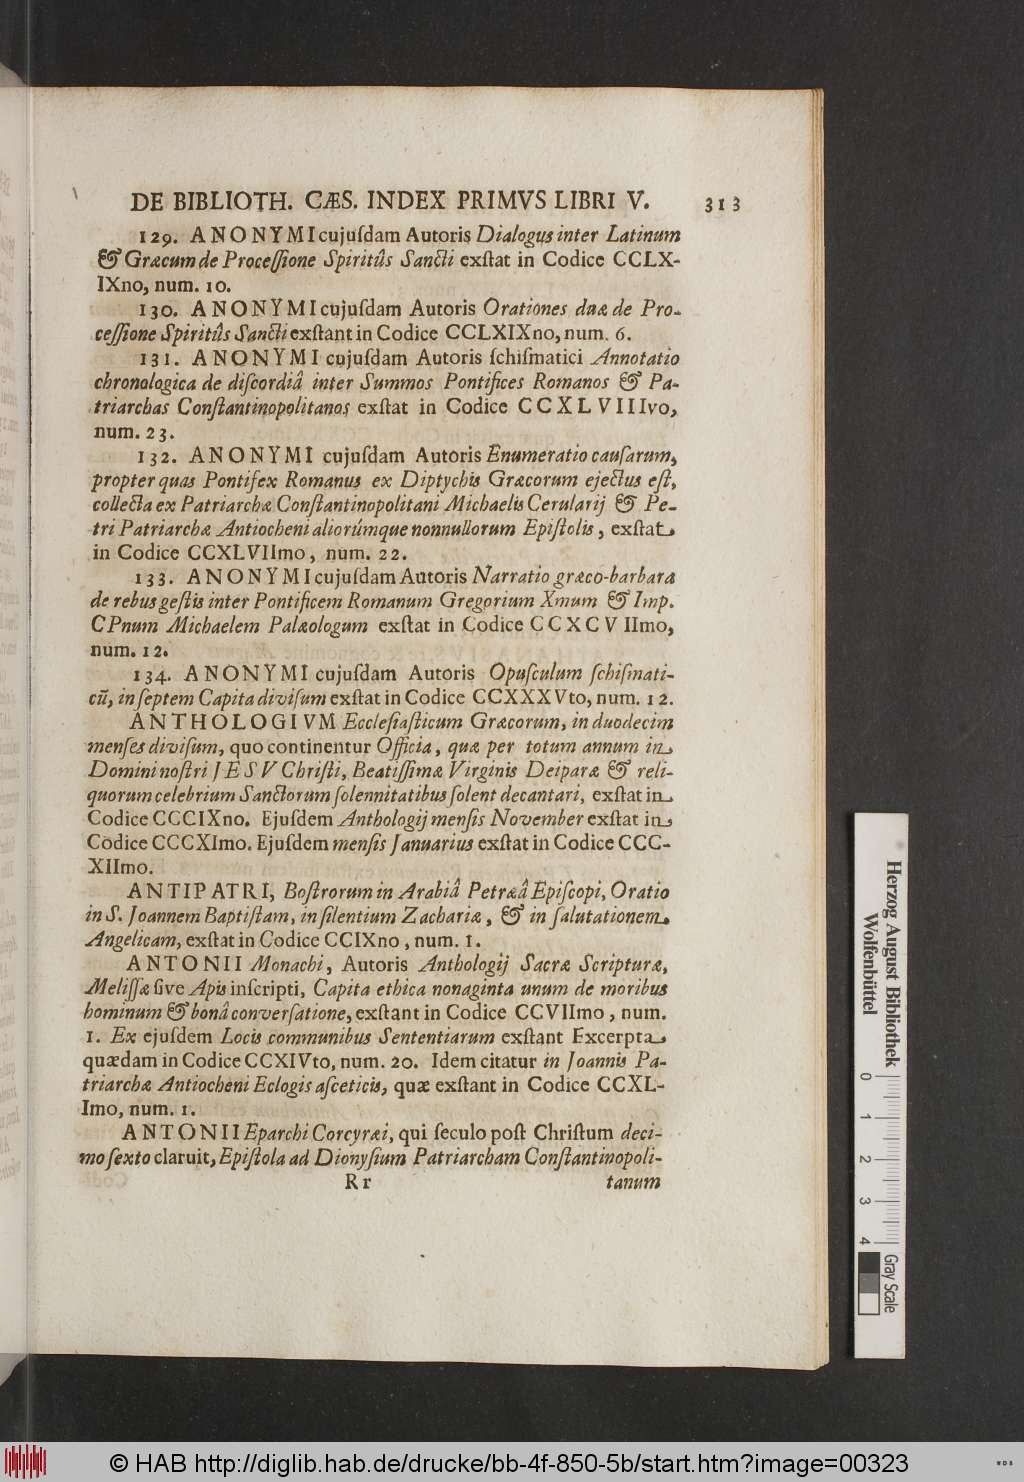 DE BIBLIOTH. CÆS. INDEX PRIMVS LIBRI V. 313
129. ANONYMI cujuſdam Autoris Dialogus inter Latinum
& Græcum de Proceſſione Spiritûs Sancti exſtat in Codice CCLX-
IXno, num. 10.
130. ANONYMI cujuſdam Autoris Orationes duæ de Pro-
ceſſione Spiritûs Sancti exſtant in Codice CCLXIXno, num. 6.
131. ANONYMI cujuſdam Autoris ſchiſmatici Annotatio
chronologica de diſcordiâ inter Summos Pontifices Romanos & Pa-
triarchas Conſtantinopolitanos exſtat in Codice CCXLVIIIvo,
num. 23.
132. ANONYMI cujuſdam Autoris Enumeratio cauſarum,
propter quas Pontifex Romanus ex Diptychis Græcorum ejectus eſt,
collecta ex Patriarchæ Conſtantinopolitani Michaelis Cerularij & Pe-
tri Patriarchæ Antiocheni aliorúmque nonnullorum Epiſtolis, exſtat
in Codice CCXLVIImo, num. 22.
133. ANONYMI cujuſdam Autoris Narratio græco-barbara
de rebus geſtis inter Pontificem Romanum Gregorium Xmum & Imp.
CPnum Michaelem Palæologum exſtat in Codice CCXCVIImo,
num. 12.
134. ANONYMI cujuſdam Autoris Opuſculum ſchiſmati-
cū, in ſeptem Capita diviſum exſtat in Codice CCXXXVto, num. 12.
ANTHOLOGIVM Eccleſiaſticum Græcorum, in duodecim
menſes diviſum, quo continentur Officia, quæ per totum annum in
Domini noſtri JESV Chriſti, Beatiſſimæ Virginis Deiparæ & reli-
quorum celebrium Sanctorum ſolennitatibus ſolent decantari, exſtat in
Codice CCCIXno. Ejuſdem Anthologij menſis November exſtat in
Codice CCCXImo. Ejuſdem menſis Januarius exſtat in Codice CCC-
XIImo.
ANTIPATRI, Boſtrorum in Arabiâ Petræâ Epiſcopi, Oratio
in S. Joannem Baptiſtam, in ſilentium Zachariæ, & in ſalutationem
Angelicam, exſtat in Codice CCIXno, num. 1.
ANTONII Monachi, Autoris Anthologij Sacræ Scripturæ,
Meliſſæ ſive Apis inſcripti, Capita ethica nonaginta unum de moribus
hominum & bonâ converſatione, exſtant in Codice CCVIImo, num.
1. Ex ejuſdem Locis communibus Sententiarum exſtant Excerpta
quædam in Codice CCXIVto, num. 20. Idem citatur in Joannis Pa-
triarchæ Antiocheni Eclogis aſceticis, quæ exſtant in Codice CCXL-
Imo, num. 1.
ANTONII Eparchi Corcyræi, qui ſeculo poſt Chriſtum deci-
mo ſexto claruit, Epiſtola ad Dionyſium Patriarcham Conſtantinopoli-
Rr tanum
Herzog August Bibliothek
Wolfenbüttel
0 1 2 3 4
Gray Scale
© HAB http://diglib.hab.de/drucke/bb-4f-850-5b/start.htm?image=00323